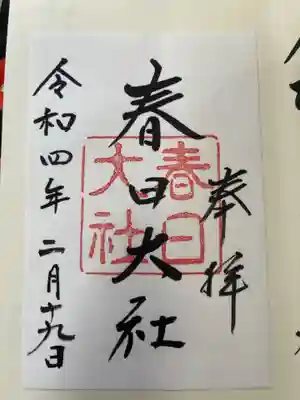 奉拝
春日大社
春日
大社
令和四年二月十九日